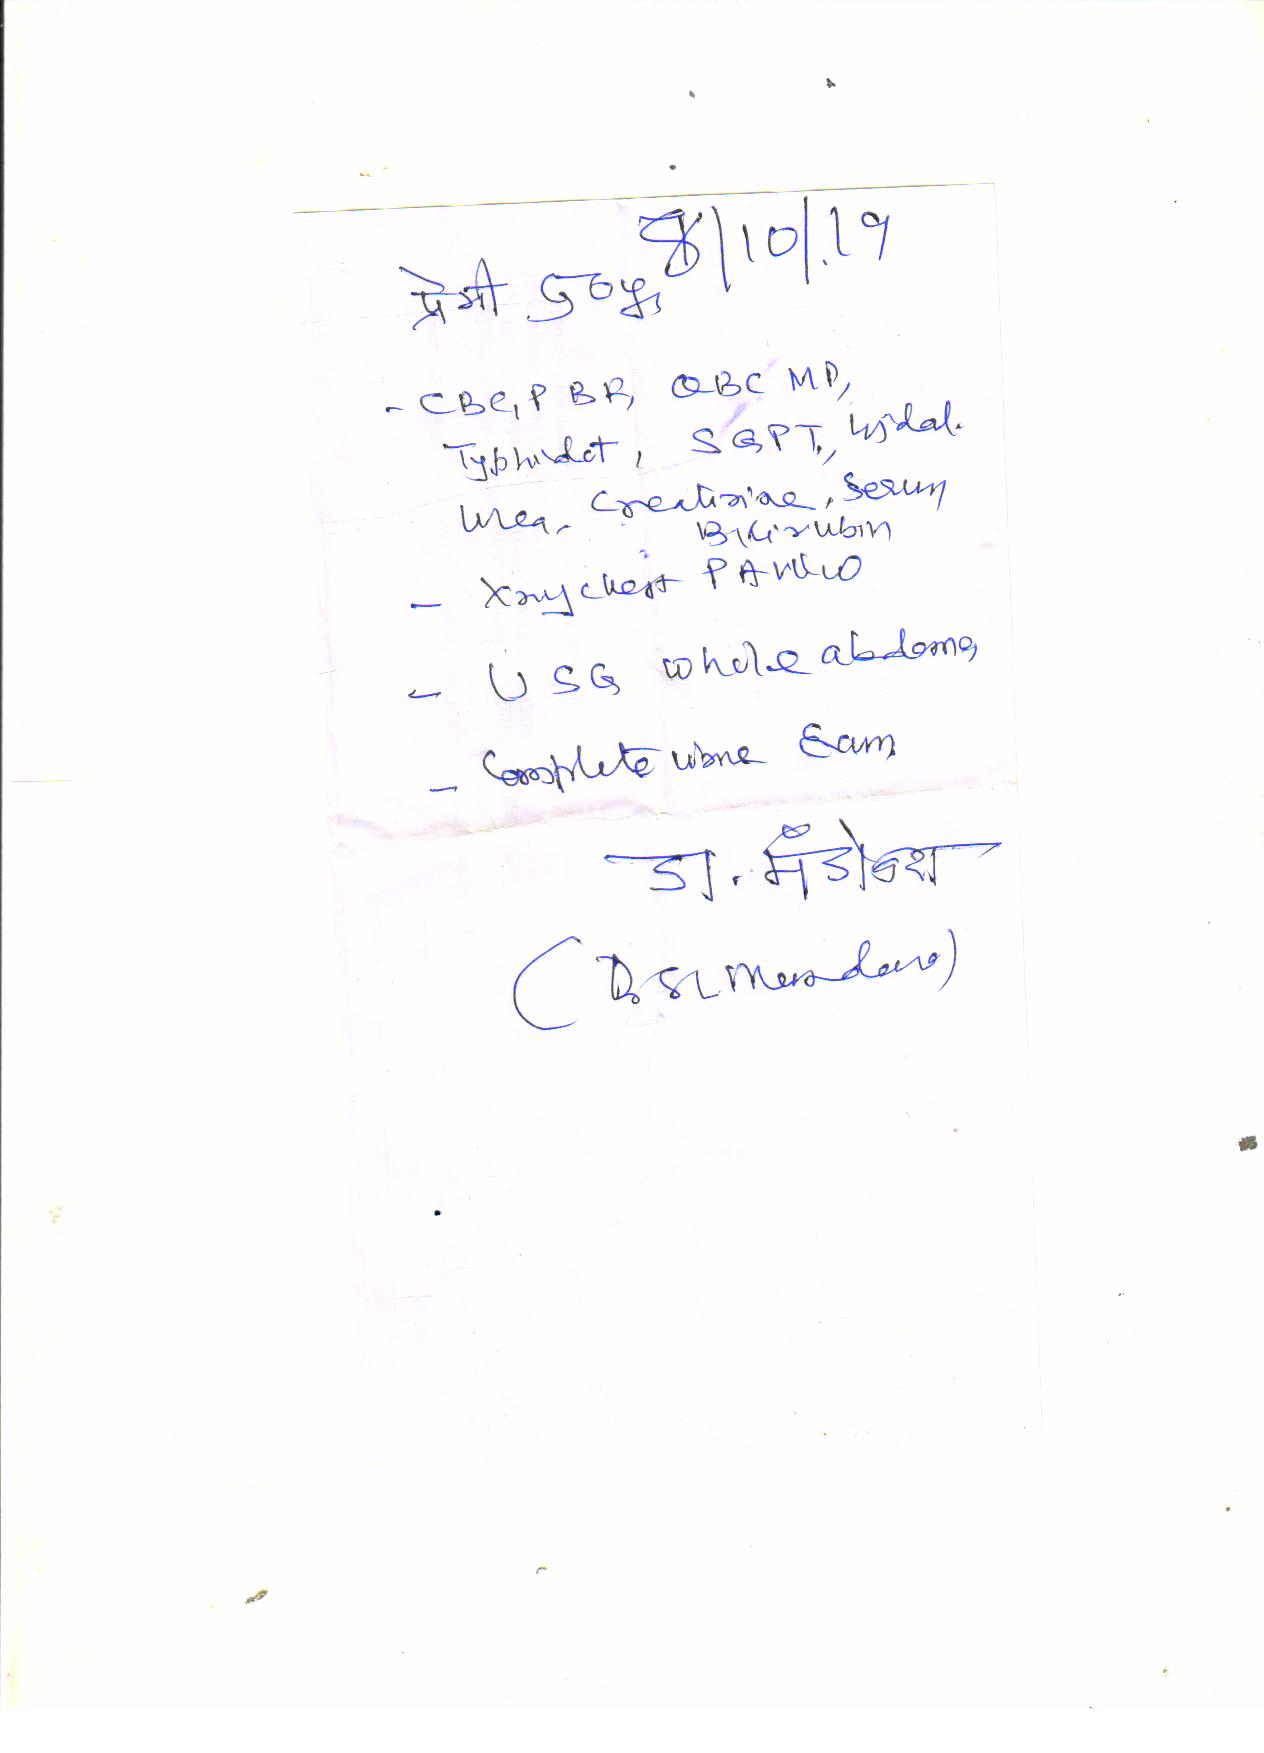 8/10/.19
प्रेमी
- CBC, PBR, QBC MP,
Typhidot, SGPT, Widal.
Urea, Creatinine, Serum
Bilirubin
- Xray chest PA view
- USG whole abdomen
- Complete urine Exam
डा. मँडोवरा
(Dr SL Mandowra)